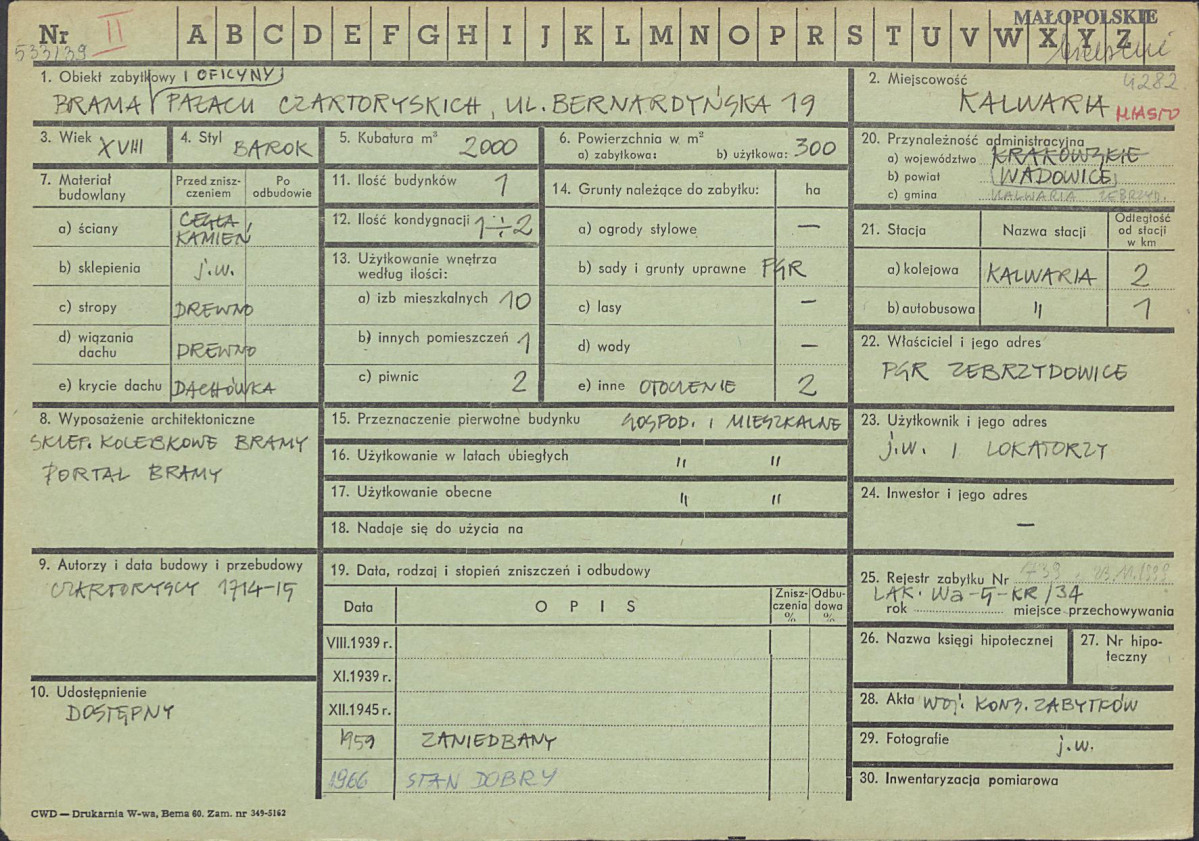 Nr II A B C D E F G H I J K L M N O P R S T U V W X Y Z
MAŁOPOLSKIE
533/39
4282
1. Obiekt zabytkowy I OFICYNY
BRAMA PAŁACU CZARTORYSKICH, UL. BERNARDYŃSKA 19
2. Miejscowość
KALWARIA MIASTO
3. Wiek XVIII
4. Styl BAROK
5. Kubatura m³ 2000
6. Powierzchnia w m²
a) zabytkowa: b) użytkowa: 300
7. Materiał budowlany
Przed zniszczeniem
Po odbudowie
a) ściany CEGŁA KAMIEŃ
b) sklepienia j.w.
c) stropy DREWNO
d) wiązania dachu DREWNO
e) krycie dachu DACHÓWKA
8. Wyposażenie architektoniczne
SKLEP. KOLEBKOWE BRAMY
PORTAL BRAMY
9. Autorzy i data budowy i przebudowy
CZARTORYSCY 1714-15
10. Udostępnienie
DOSTĘPNY
11. Ilość budynków 1
12. Ilość kondygnacji 1÷2
13. Użytkowanie wnętrza
według ilości:
a) izb mieszkalnych 10
b) innych pomieszczeń 1
c) piwnic 2
14. Grunty należące do zabytku: ha
a) ogrody stylowe —
b) sady i grunty uprawne PGR
c) lasy —
d) wody —
e) inne OTOCZENIE 2
15. Przeznaczenie pierwotne budynku GOSPOD. I MIESZKALNE
16. Użytkowanie w latach ubiegłych " "
17. Użytkowanie obecne " "
18. Nadaje się do użycia na
19. Data, rodzaj i stopień zniszczeń i odbudowy
Data OPIS Zniszczenia % Odbudowa %
VIII.1939 r.
XI.1939 r.
XII.1945 r.
1959 ZANIEDBANY
1966 STAN DOBRY
20. Przynależność administracyjna
a) województwo KRAKOWSKIE
b) powiat (WADOWICE)
c) gmina KALWARIA ZEBRZYD.
21. Stacja Nazwa stacji Odległość od stacji w km
a) kolejowa KALWARIA 2
b) autobusowa " 1
22. Właściciel i jego adres
PGR ZEBRZYDOWICE
23. Użytkownik i jego adres
j.w. i LOKATORZY
24. Inwestor i jego adres
—
25. Rejestr zabytku Nr
LAK. Wa-5-KR/34
rok miejsce przechowywania
26. Nazwa księgi hipotecznej
27. Nr hipoteczny
28. Akta WOJ. KONS. ZABYTKÓW
29. Fotografie j.w.
30. Inwentaryzacja pomiarowa
CWD — Drukarnia W-wa, Bema 60. Zam. nr 349-5162